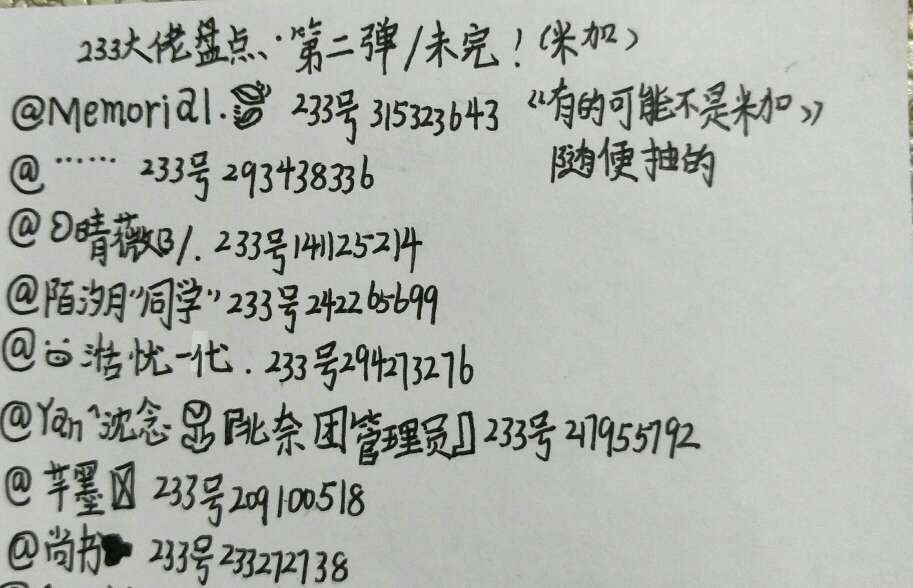 233大佬盘点:第二弹/未完!(米加)
@Memorial. 233号 315323643 《有的可能不是米加》
随便抽的
@…… 233号 293438336
@ 晴薇 /. 233号141125214
@陌汐月"同学" 233号242265699
@ 浩忧一代. 233号294273276
@Yan^沈念 『兆奈团管理员』233号 217955792
@芊墨 233号209100518
@尚书 233号233272738